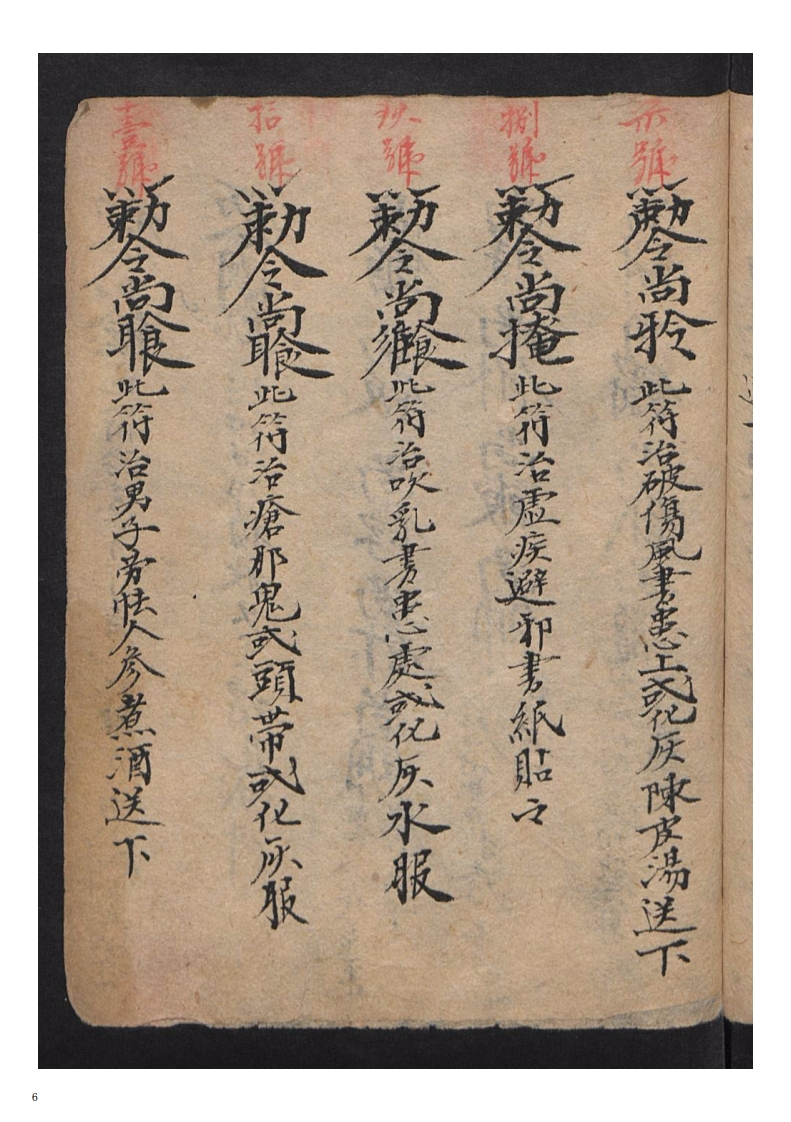 柒號
勅令尚 此符治破傷風書患上或化灰陳皮湯送下
捌號
勅令尚掩 此符治虛疾避邪書紙貼々
玖號
勅令尚 此符治吹乳書患處或化灰水服
拾號
勅令尚 此符治瘡那鬼或頭帶或化灰服
壹號
勅令尚 此符治男子勞怯人參煮酒送下
6